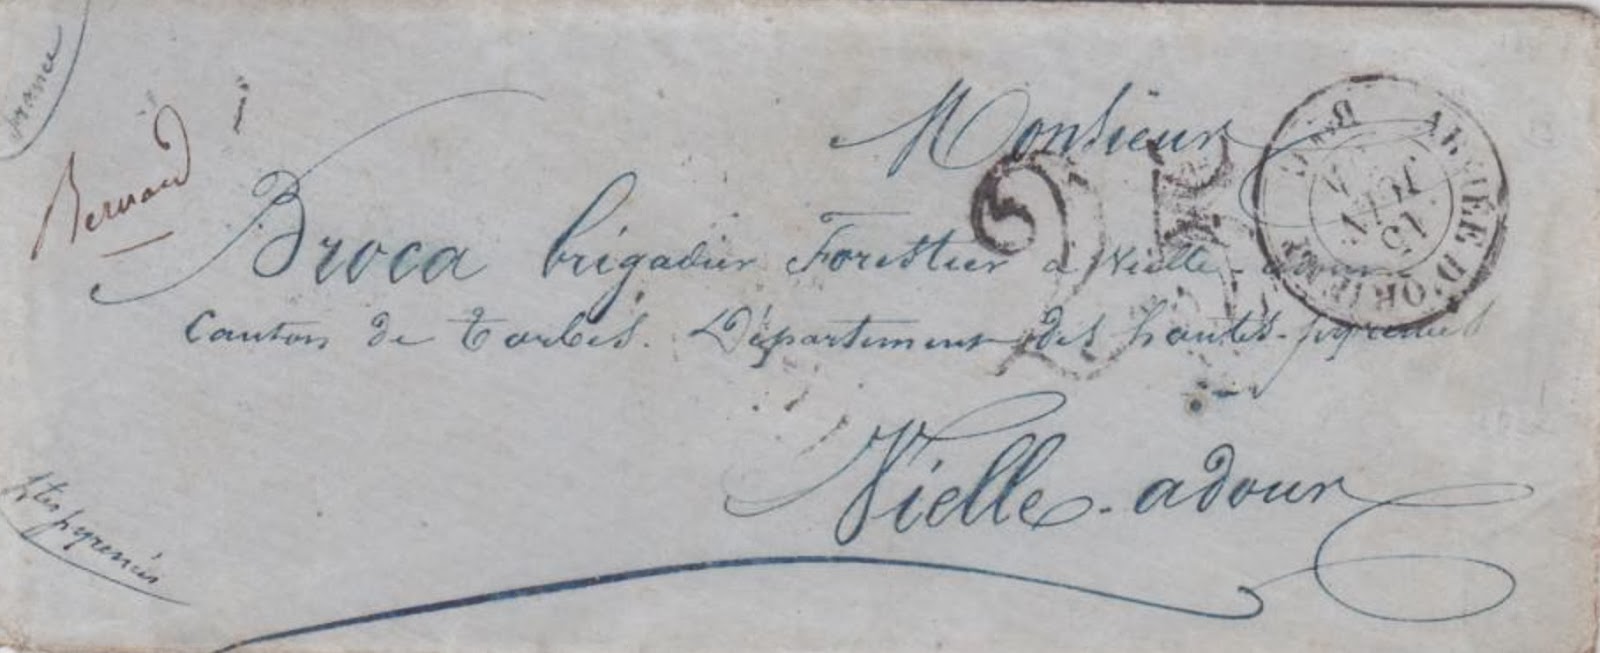 france
Bernard
Monsieur
Broca brigadier Forestier a Vielle-adour
Canton de Tarbes. Département des hautes-pyrenees
Vielle-adour
htes pyrenées
25
ARMÉE D'ORIENT